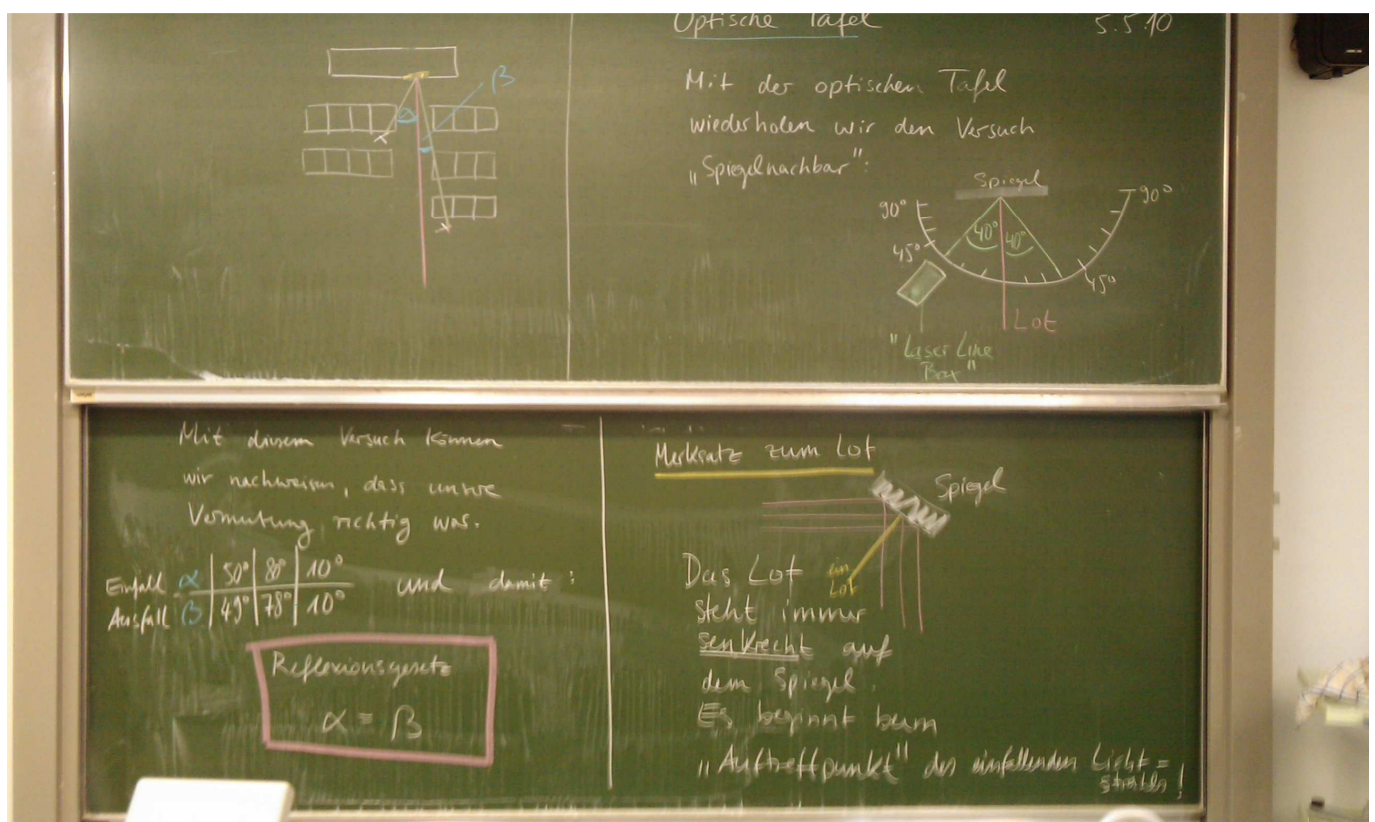 β
α
Optische Tafel
5.5.10
Mit der optischen Tafel
wiederholen wir den Versuch
„Spiegelnachbar":
Spiegel
90° 90°
40° 40°
45° 45°
Lot
"Laser Line
Box"
Mit diesem Versuch können
wir nachweisen, dass unsere
Vermutung richtig war.
Einfall α | 50° | 80° | 10°
Ausfall β | 49° | 78° | 10°
und damit:
Reflexionsgesetz
α = β
Merksatz zum Lot
Spiegel
ein
Lot
Das Lot
steht immer
senkrecht auf
dem Spiegel.
Es beginnt beim
„Auftreffpunkt" des einfallenden Licht=
strahls!